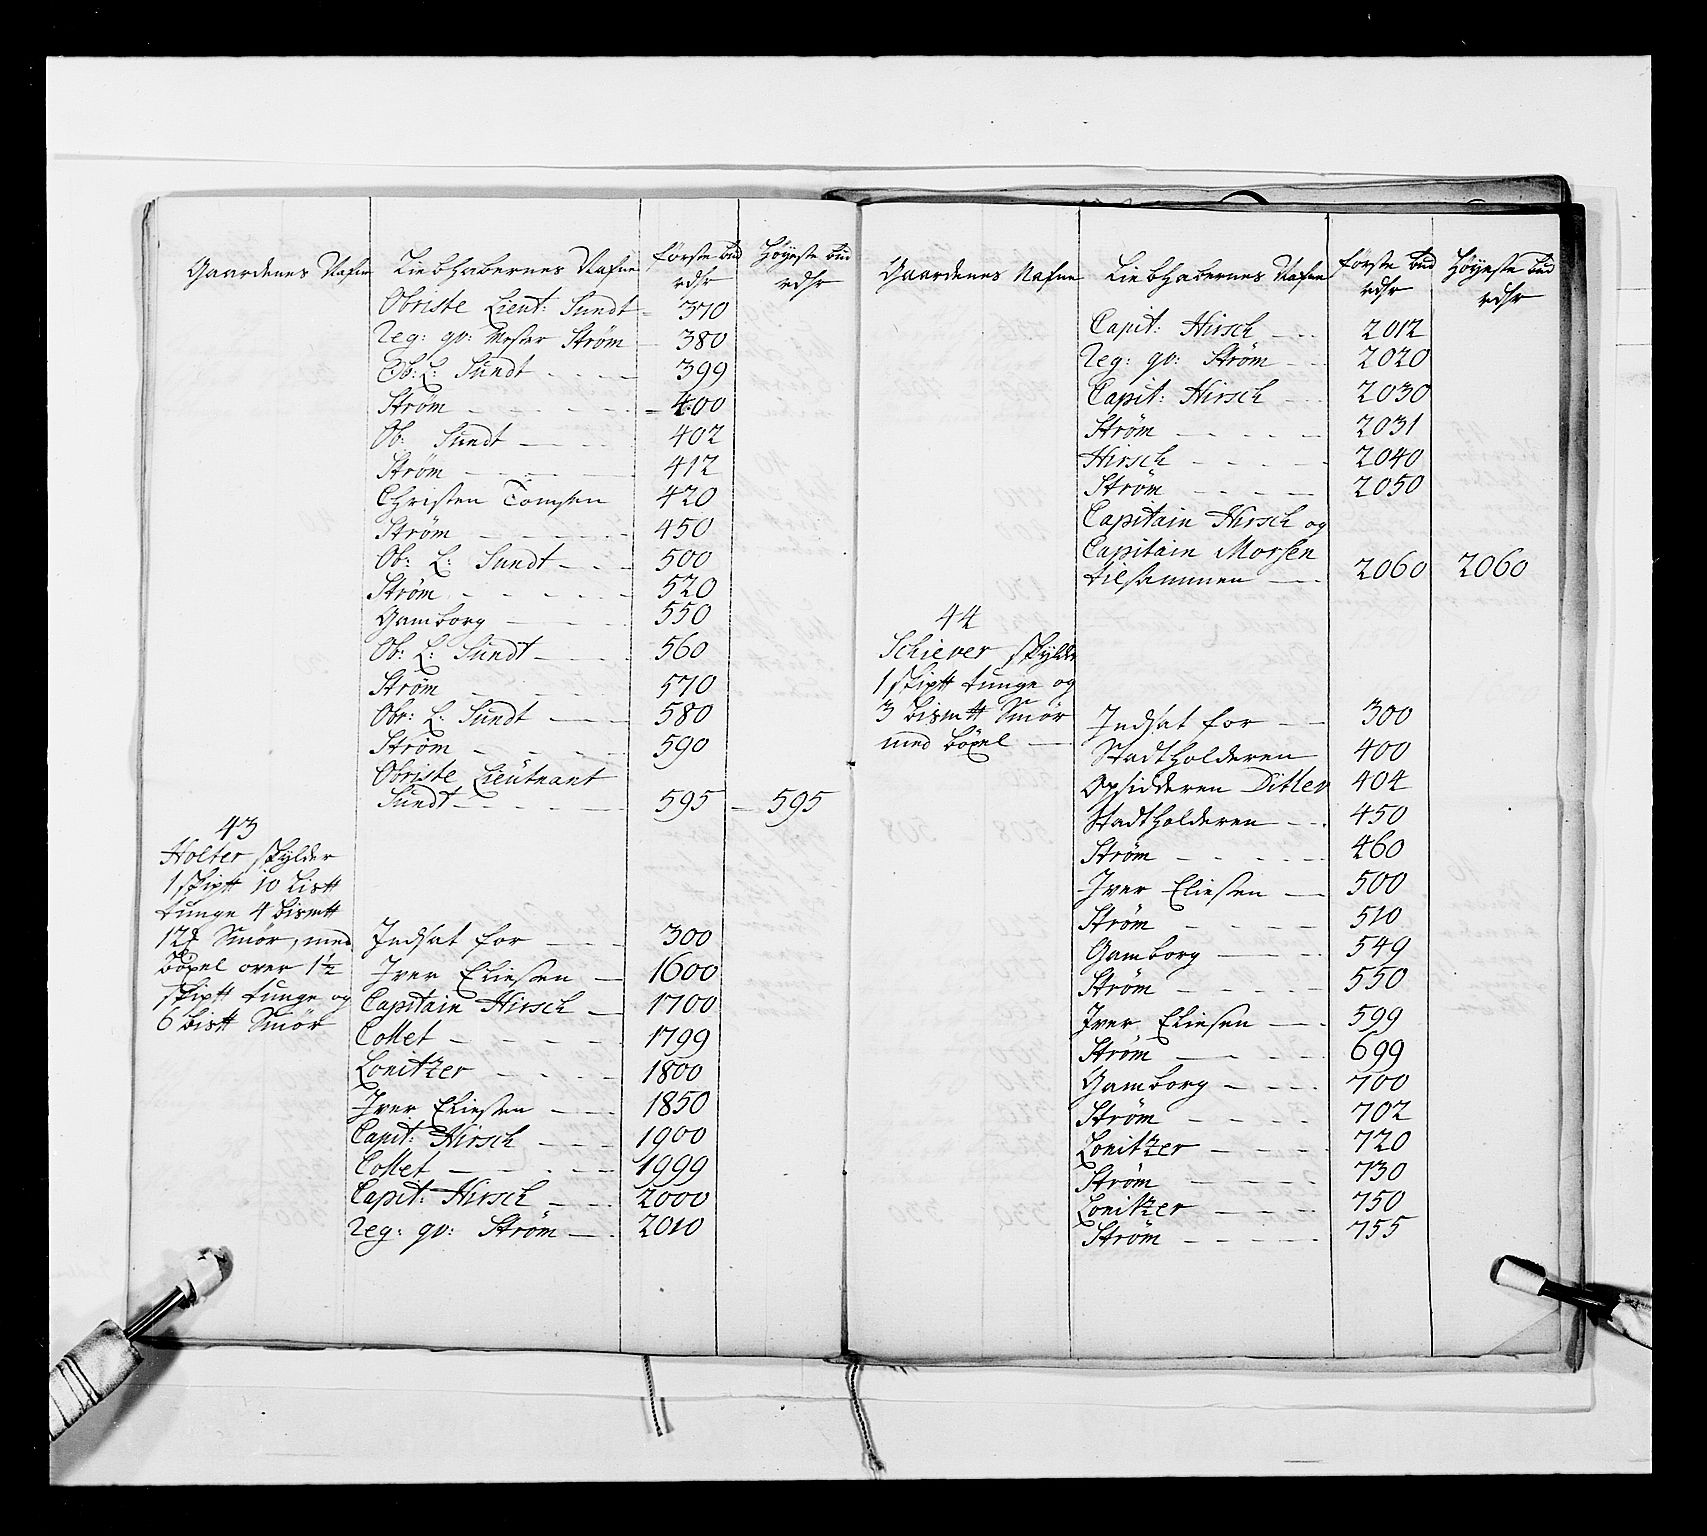 Gaardenes Nafne Liebhabernes Nafne første bud rdlr Høyeste bud rdlr
Obriste Lieut: Sundt 370
Reg: qv: Mester Strøm 380
Ob: L: Sundt 399
Strøm 400
Ob: Sundt 402
Strøm 412
Christen Tomsen 420
Strøm 450
Ob: L: Sundt 500
Strøm 520
Gamborg 550
Ob: L: Sundt 560
Strøm 570
Obr: L: Sundt 580
Strøm 590
Obriste Lieutnant
Sundt 595 595
43
Holter skylder
1 skip℔ 10 lis℔
tunge 4 bism℔
12 Smør, med Indsat for 300
böxel over 1½ Iver Eliesen 1600
skip℔ tunge og Capitain Hirsch 1700
6 bis℔ Smör Collet 1799
Lonitzer 1800
Iver Eliesen 1850
Capit: Hirsch 1900
Collet 1999
Capit: Hirsch 2000
Reg: qv: Strøm 2010
Gaardenes Nafne Liebhabernes Nafne første bud rdlr Høyeste bud rdlr
Capit: Hirsch 2012
Reg: qv: Strøm 2020
Capit: Hirsch 2030
Strøm 2031
Hirsch 2040
Strøm 2050
Capitain Hirsch og
Capitain Morsen
tilsammen 2060 2060
44
Schiever skylder
1 skip℔ tunge og
3 bism℔ Smör Indsat for 300
med böxel Stadtholderen 400
Opsidderen Ditlev 404
Stadtholderen 450
Strøm 460
Iver Eliesen 500
Strøm 510
Gamborg 549
Strøm 550
Iver Eliesen 599
Strøm 699
Gamborg 700
Strøm 702
Lonitzer 720
Strøm 730
Lonitzer 750
Strøm 755